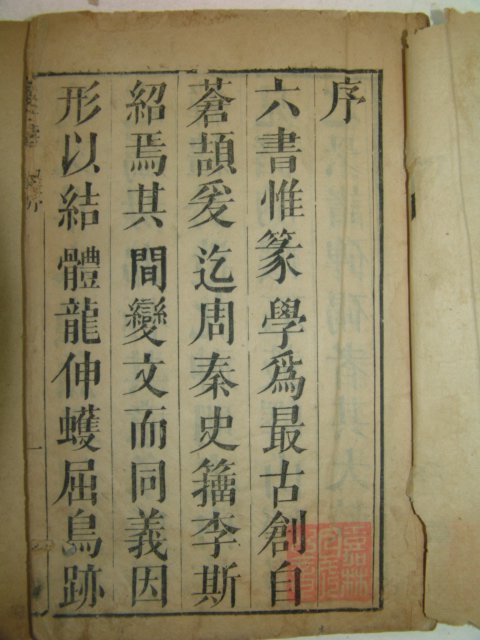 序
六書惟篆學爲最古創自
蒼頡爰迄周秦史籀李斯
紹焉其間變文而同義因
形以結體龍伸蠖屈鳥跡